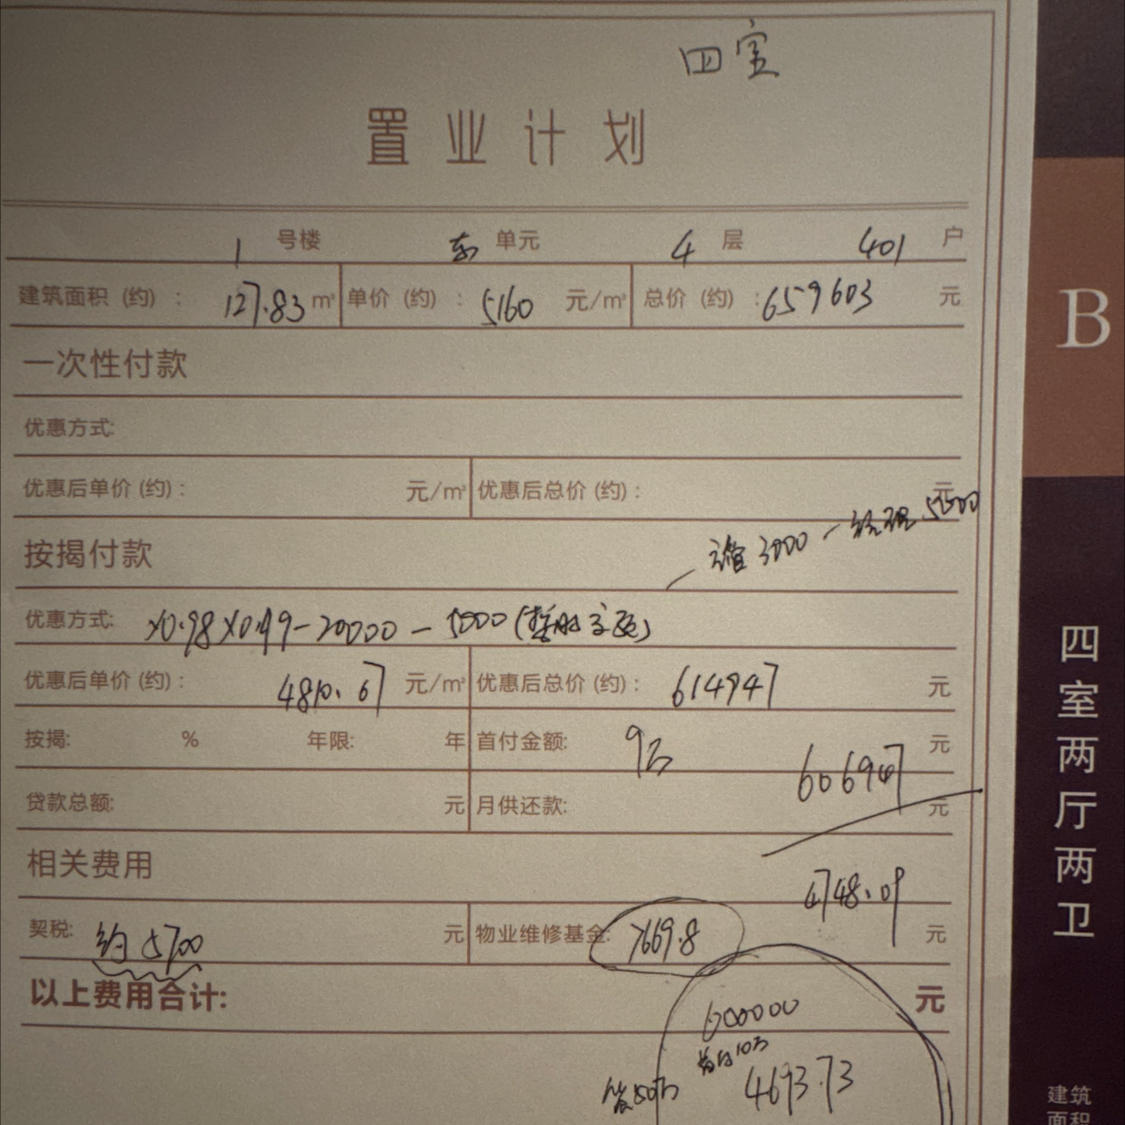 四室
置业计划
1 号楼 东 单元 4 层 401 户
建筑面积（约）: 127.83 m² 单价（约）: 5160 元/m² 总价（约）: 659603 元
B
一次性付款
优惠方式:
优惠后单价(约): 元/m² 优惠后总价(约): 元
3000 - 经理5000
按揭付款
优惠方式: ×0.98×0.99-20000-5000(
优惠后单价(约): 4810.67 元/m² 优惠后总价(约): 614947 元
按揭: % 年限: 年 首付金额: 9万 元
606947
贷款总额: 元 月供还款: 元
相关费用
4748.09
契税: 约5700 元 物业维修基金: 7669.8 元
以上费用合计: 元
600000
首付10万
贷50万 4693.73
四室两厅两卫
建筑
面积